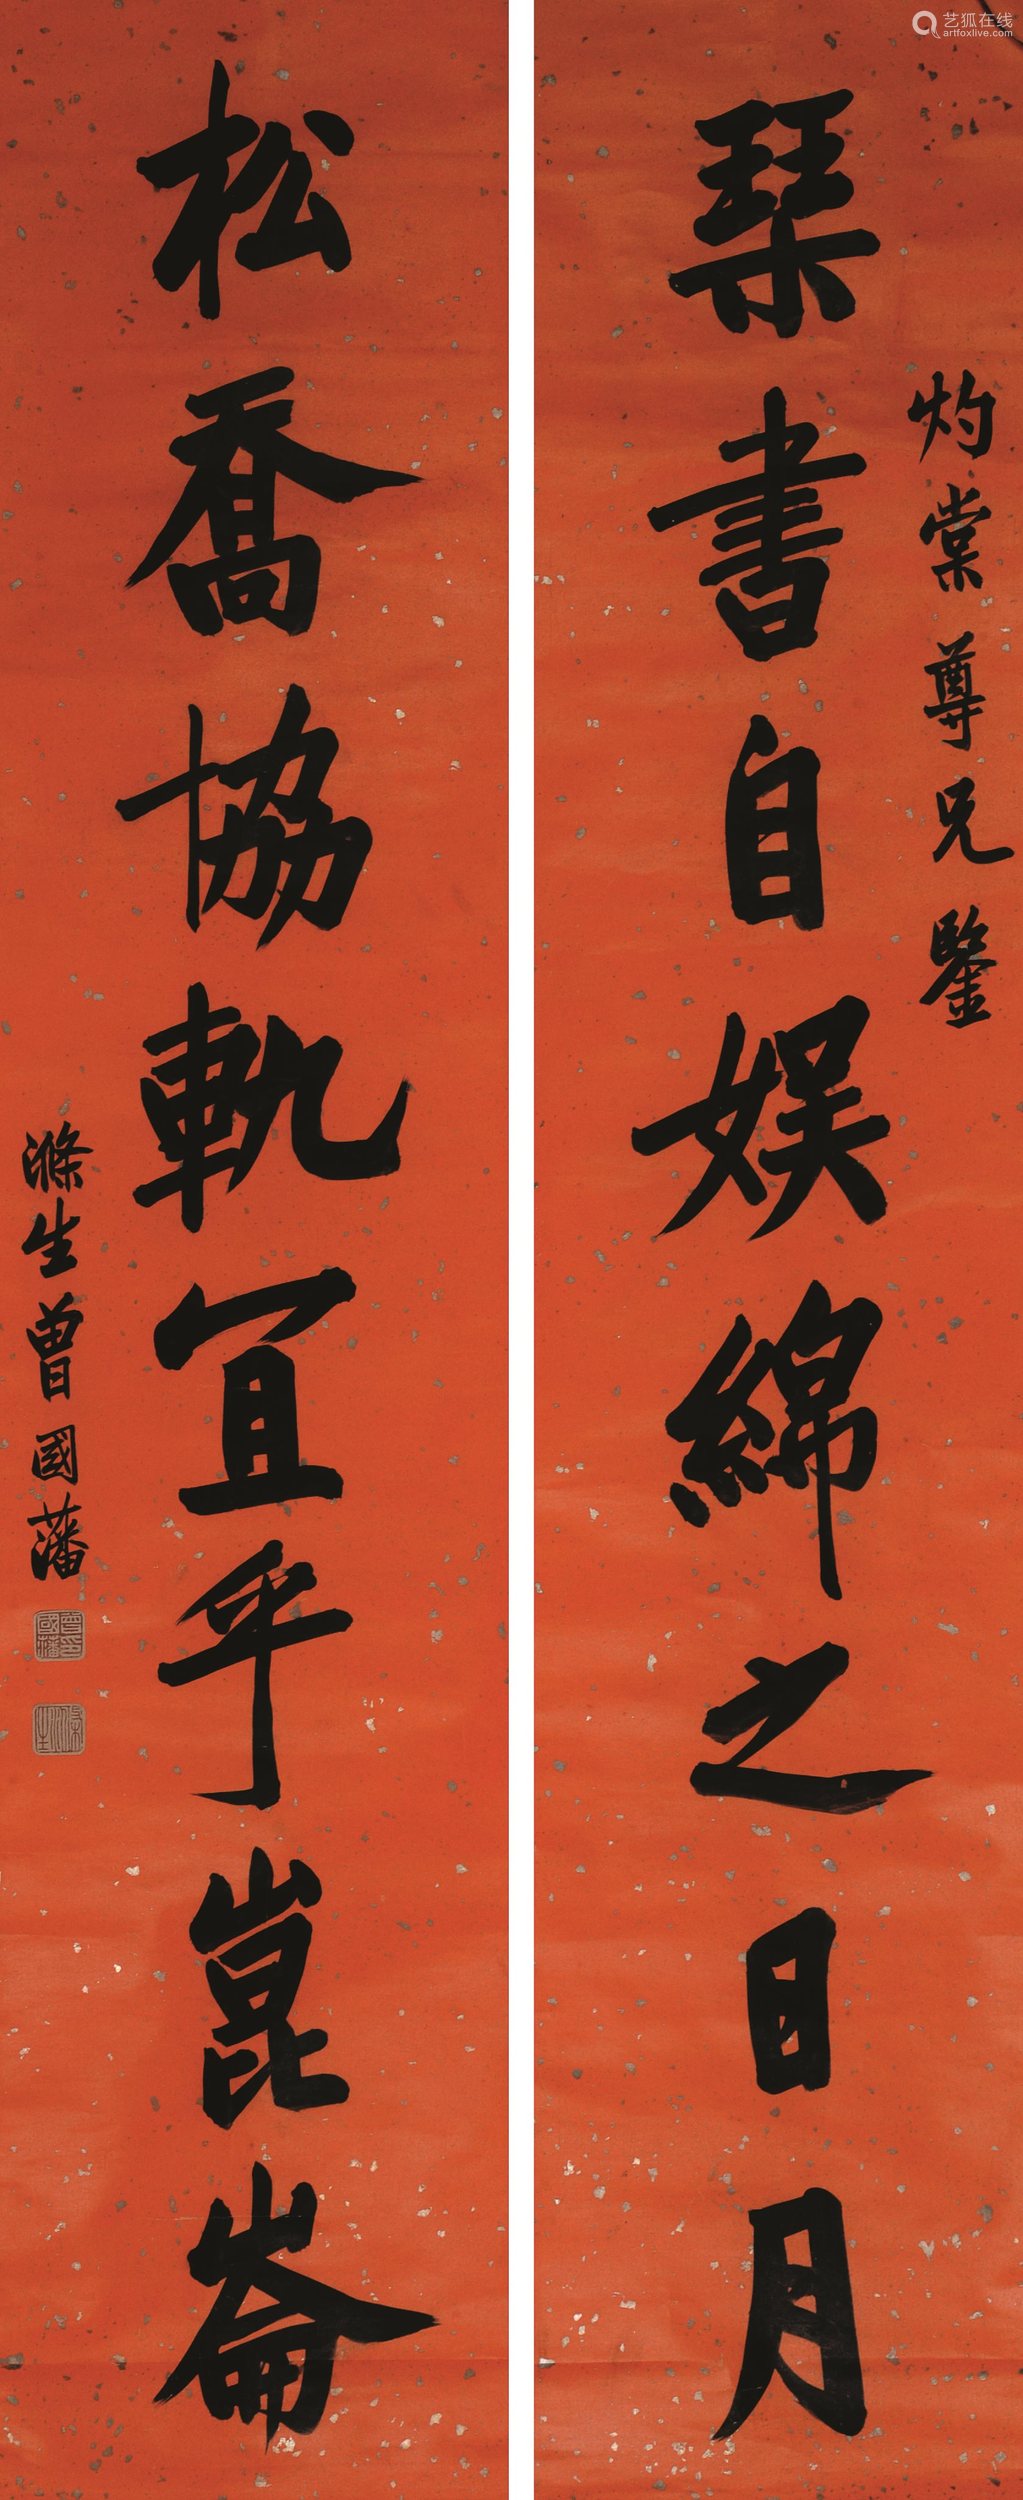 艺狐在线
artfoxlive.com
灼棠尊兄鉴
琹書自娱綿之日月
松喬協軌宜乎崑崙
滌生曾國藩
曾國藩印
滌生